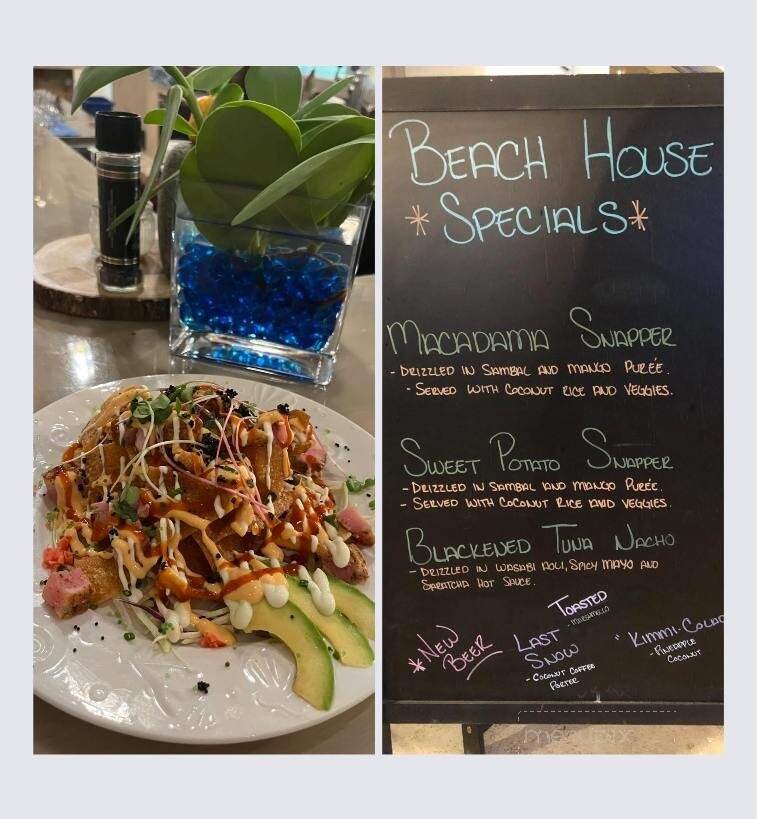 BEACH HOUSE
* SPECIALS *
MACADAMA SNAPPER
- DRIZZLED IN SAMBAL AND MANGO PURÉE.
- SERVED WITH COCONUT RICE AND VEGGIES.
SWEET POTATO SNAPPER
- DRIZZLED IN SAMBAL AND MANGO PURÉE.
- SERVED WITH COCONUT RICE AND VEGGIES.
BLACKENED TUNA NACHO
- DRIZZLED IN WASABI AOLI, SPICY MAYO AND
SARATCHA HOT SAUCE.
* NEW
BEER
TOASTED
LAST
SNOW
- COCONUT COFFEE
PORTER
KIMMI-COLAD
- PINEAPPLE
COCONUT